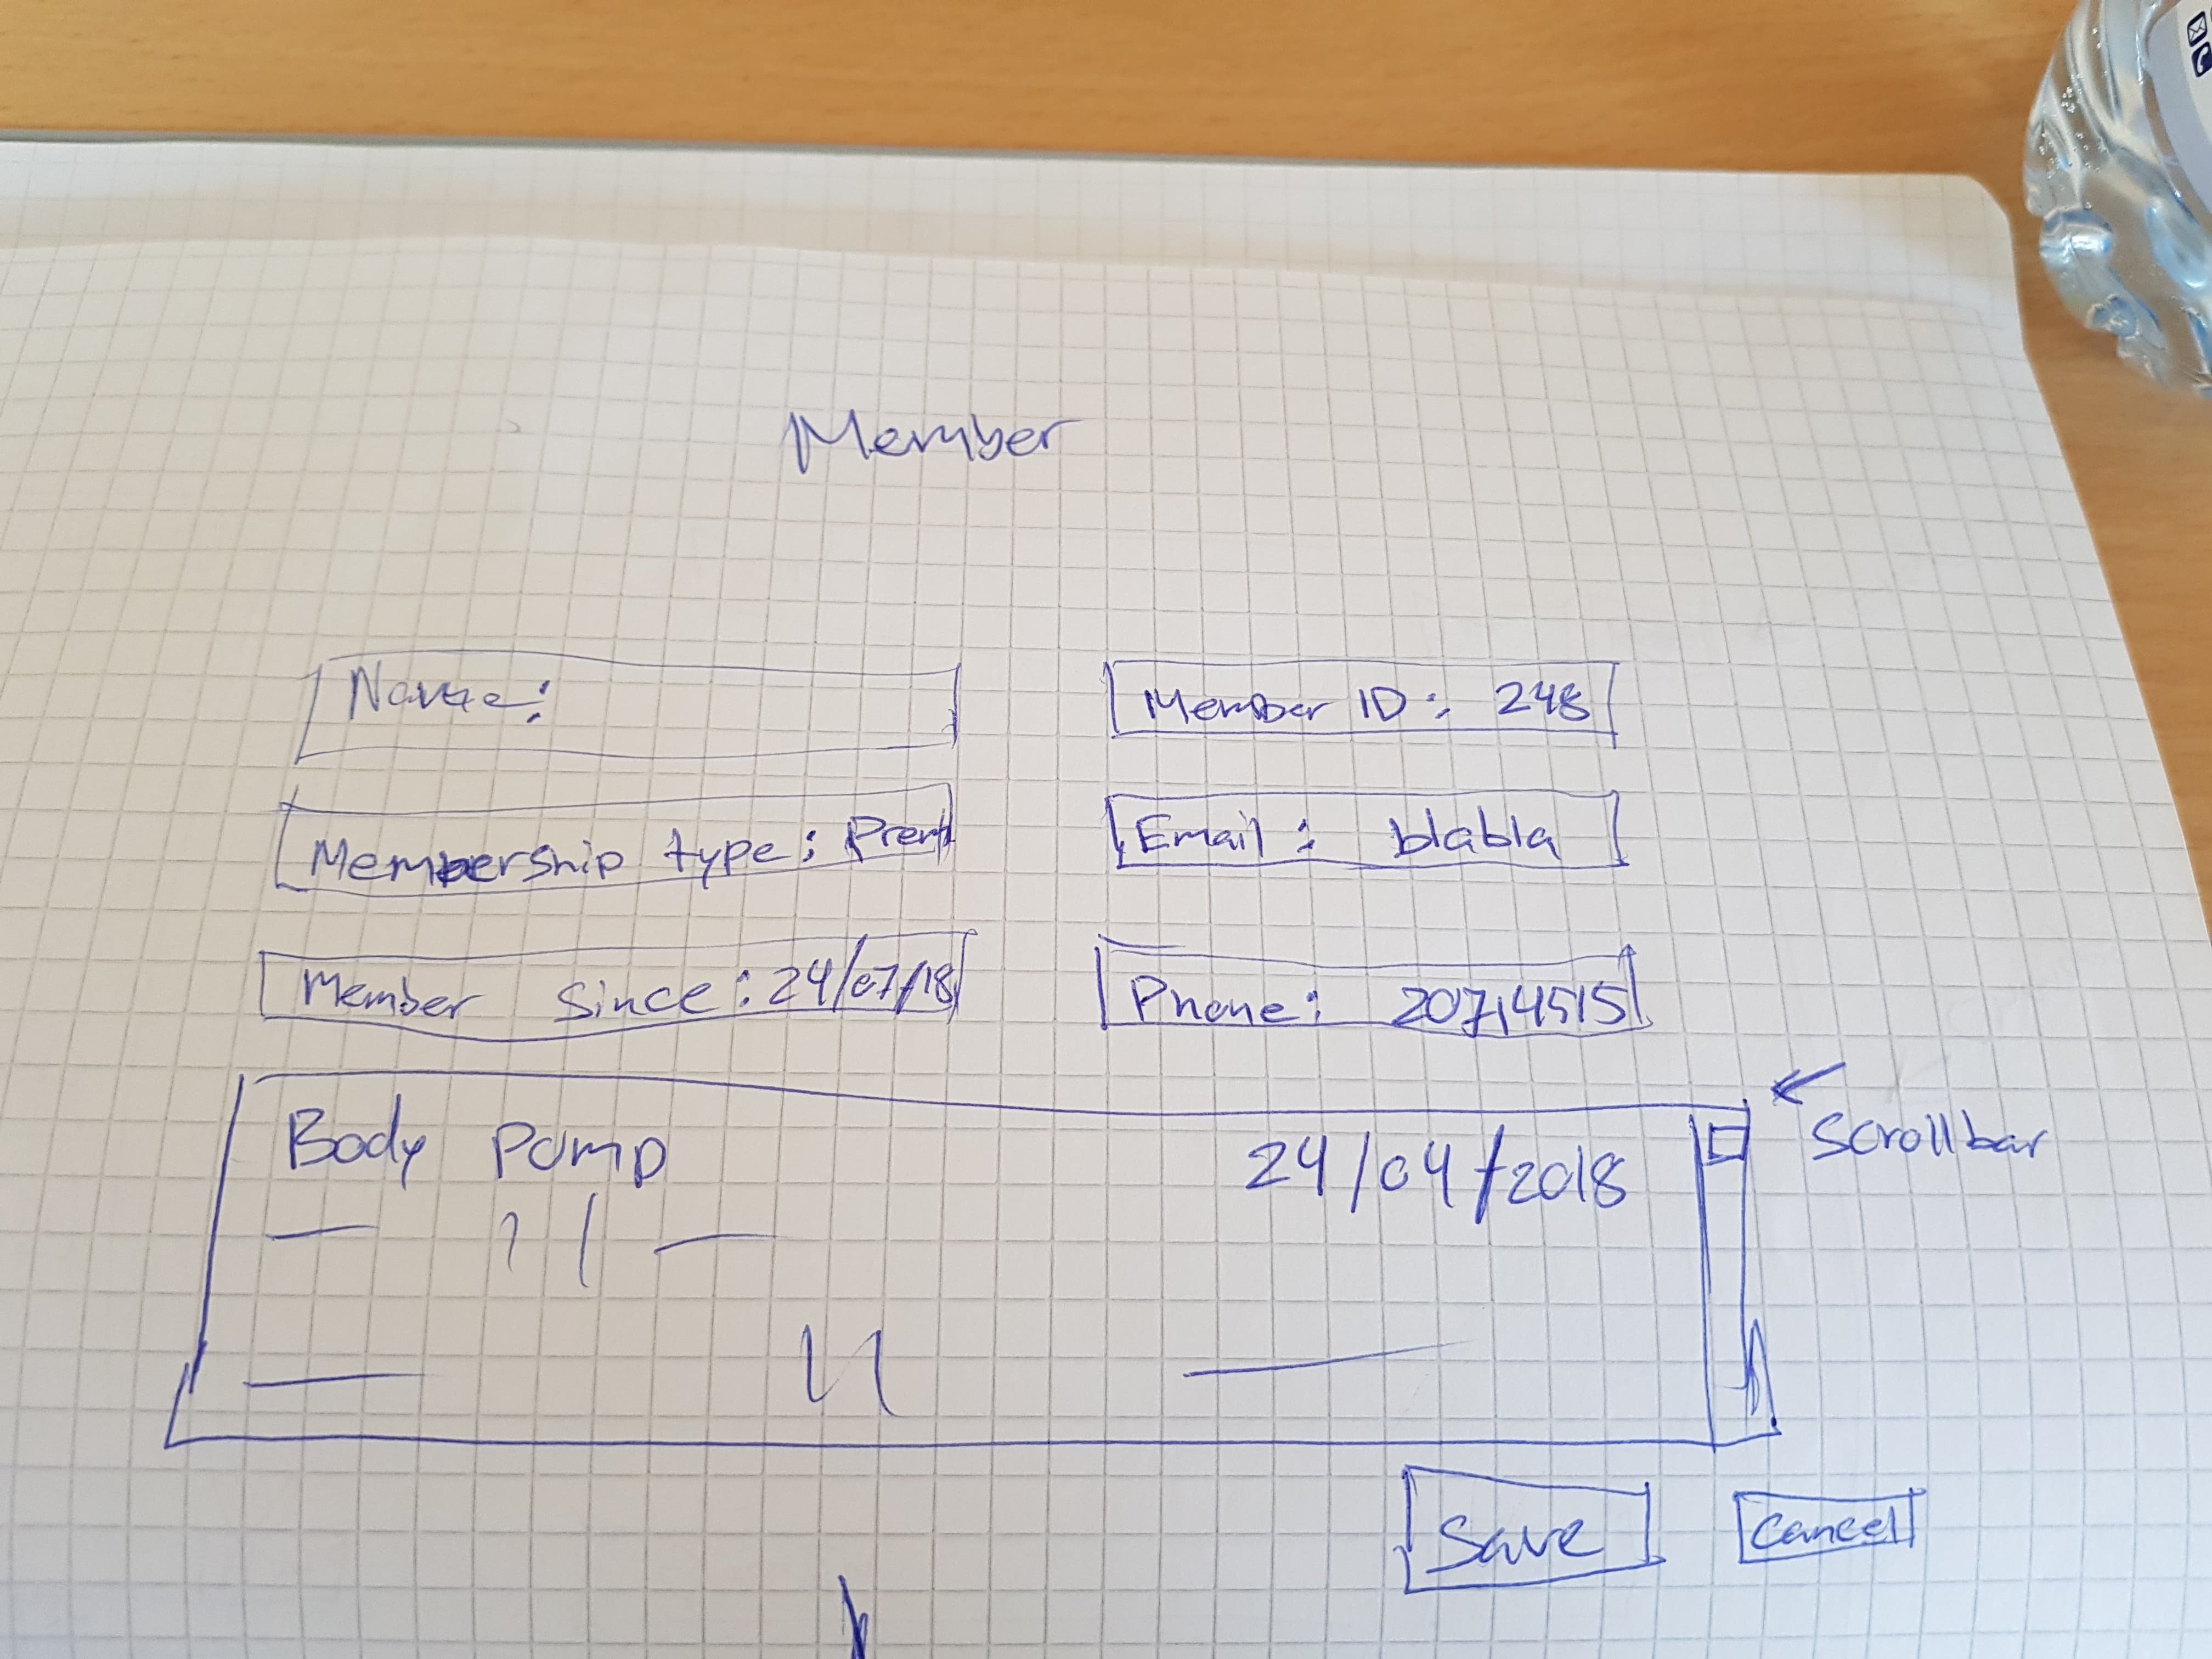 Member
Name:
Member ID: 248
Membership type: Prem
Email: blabla
Member Since: 24/07/18
Phone: 20714515
Body Pump 24/04/2018
Scrollbar
Save
Cancel